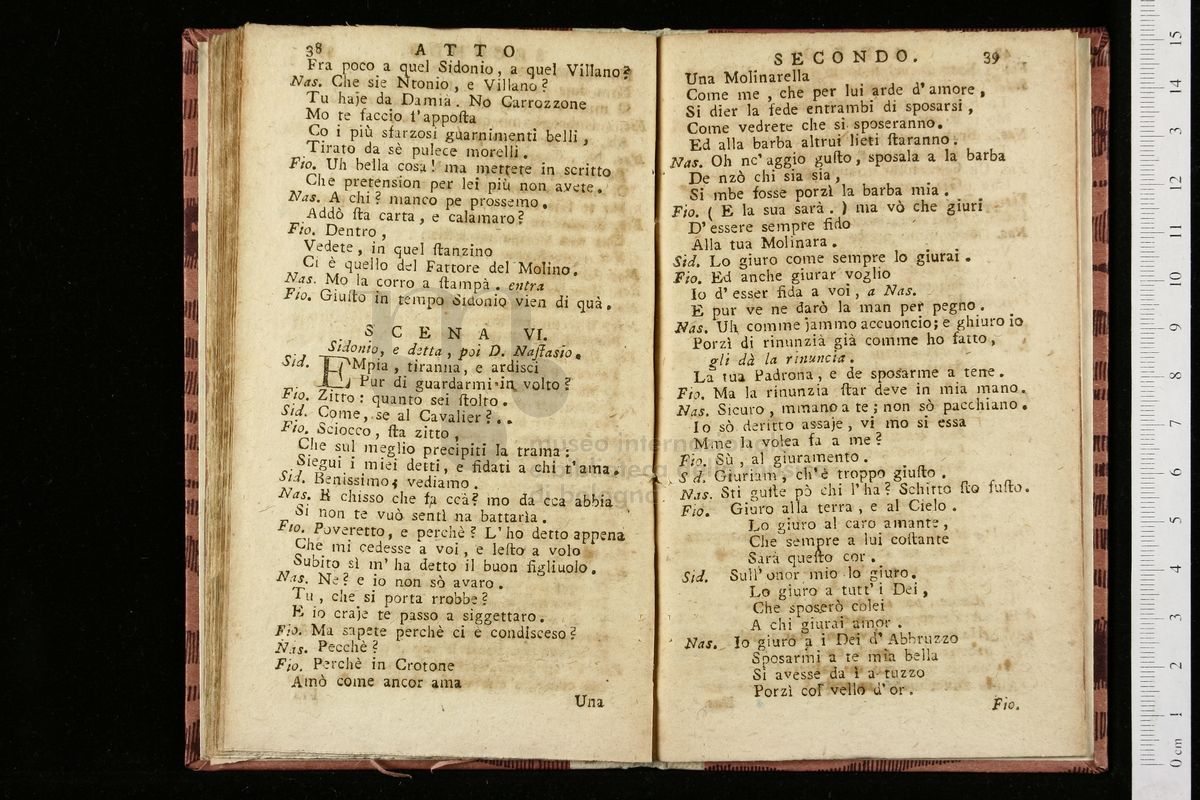 38 ATTO
Fra poco a quel Sidonio, a quel Villano?
Nas. Che sie Ntonio, e Villano?
Tu haje da Damia. No Carrozzone
Mo te faccio l'appoſta
Co i più sfarzosi guarnimenti belli,
Tirato da sè pulece morelli.
Fio. Uh bella cosa! ma mettete in scritto
Che pretension per lei più non avete.
Nas. A chi? manco pe prossemo.
Addò ſta carta, e calamaro?
Fio. Dentro,
Vedete, in quel ſtanzino
Ci è quello del Fattore del Molino.
Nas. Mo la corro a ſtampà. entra
Fio. Giuſto in tempo Sidonio vien di quà.
SCENA VI.
Sidonio, e detta, poi D. Naſtasio.
Sid. EMpia, tiranna, e ardisci
Pur di guardarmi in volto?
Fio. Zitto: quanto sei ſtolto.
Sid. Come, se al Cavalier?..
Fio. Sciocco, ſta zitto,
Che sul meglio precipiti la trama:
Siegui i miei detti, e fidati a chi t'ama.
Sid. Benissimo; vediamo.
Nas. E chisso che fa ccà? mo da cca abbia
Si non te vuò sentì na battarìa.
Fio. Poveretto, e perchè? L'ho detto appena
Che mi cedesse a voi, e leſto a volo
Subito sì m'ha detto il buon figliuolo.
Nas. Ne? e io non sò avaro.
Tu, che si porta rrobbe?
E io craje te passo a siggettaro.
Fio. Ma sapete perchè ci è condisceso?
Nas. Pecchè?
Fio. Perchè in Crotone
Amò come ancor ama
Una
SECONDO. 39
Una Molinarella
Come me, che per lui arde d'amore,
Si dier la fede entrambi di sposarsi,
Come vedrete che si sposeranno.
Ed alla barba altrui lieti ſtaranno.
Nas. Oh nc'aggio guſto, sposala a la barba
De nzò chi sia sia,
Si mbe fosse porzì la barba mia.
Fio. (E la sua sarà.) ma vò che giuri
D'essere sempre fido
Alla tua Molinara.
Sid. Lo giuro come sempre lo giurai.
Fio. Ed anche giurar voglio
Io d'esser fida a voi, a Nas.
E pur ve ne darò la man per pegno.
Nas. Uh comme jammo accuoncio; e ghiuro io
Porzì di rinunzià già comme ho fatto,
gli dà la rinuncia.
La tua Padrona, e de sposarme a tene.
Fio. Ma la rinunzia ſtar deve in mia mano.
Nas. Sicuro, mmano a te; non sò pacchiano.
Io sò deritto assaje, vi mo si essa
Mme la volea fa a me?
Fio. Sù, al giuramento.
Sid. Giuriam, ch'è troppo giuſto.
Nas. Sti guſte pò chi l'ha? Schitto ſto fuſto.
Fio. Giuro alla terra, e al Cielo.
Lo giuro al caro amante,
Che sempre a lui coſtante
Sarà queſto cor.
Sid. Sull'onor mio lo giuro.
Lo giuro a tutt'i Dei,
Che sposerò colei
A chi giurai amor.
Nas. Io giuro a i Dei d'Abbruzzo
Sposarmi a te mia bella
Si avesse da ì a tuzzo
Porzì col vello d'or.
Fio.
museo internazionale
e biblioteca della musica
di bologna
0 cm 1 2 3 4 5 6 7 8 9 10 11 12 13 14 15